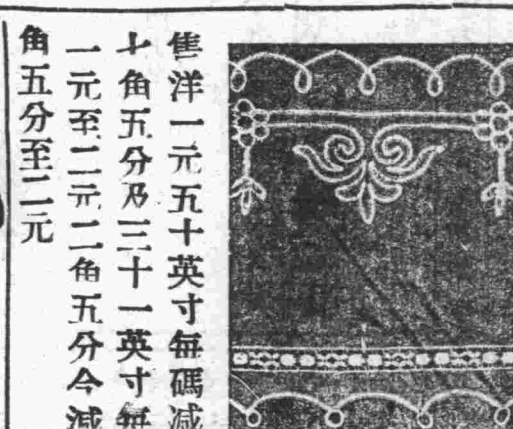 售洋一元五十英寸每碼減
七角五分及三十一英寸每
一元至二元二角五分今減
角五分至二元